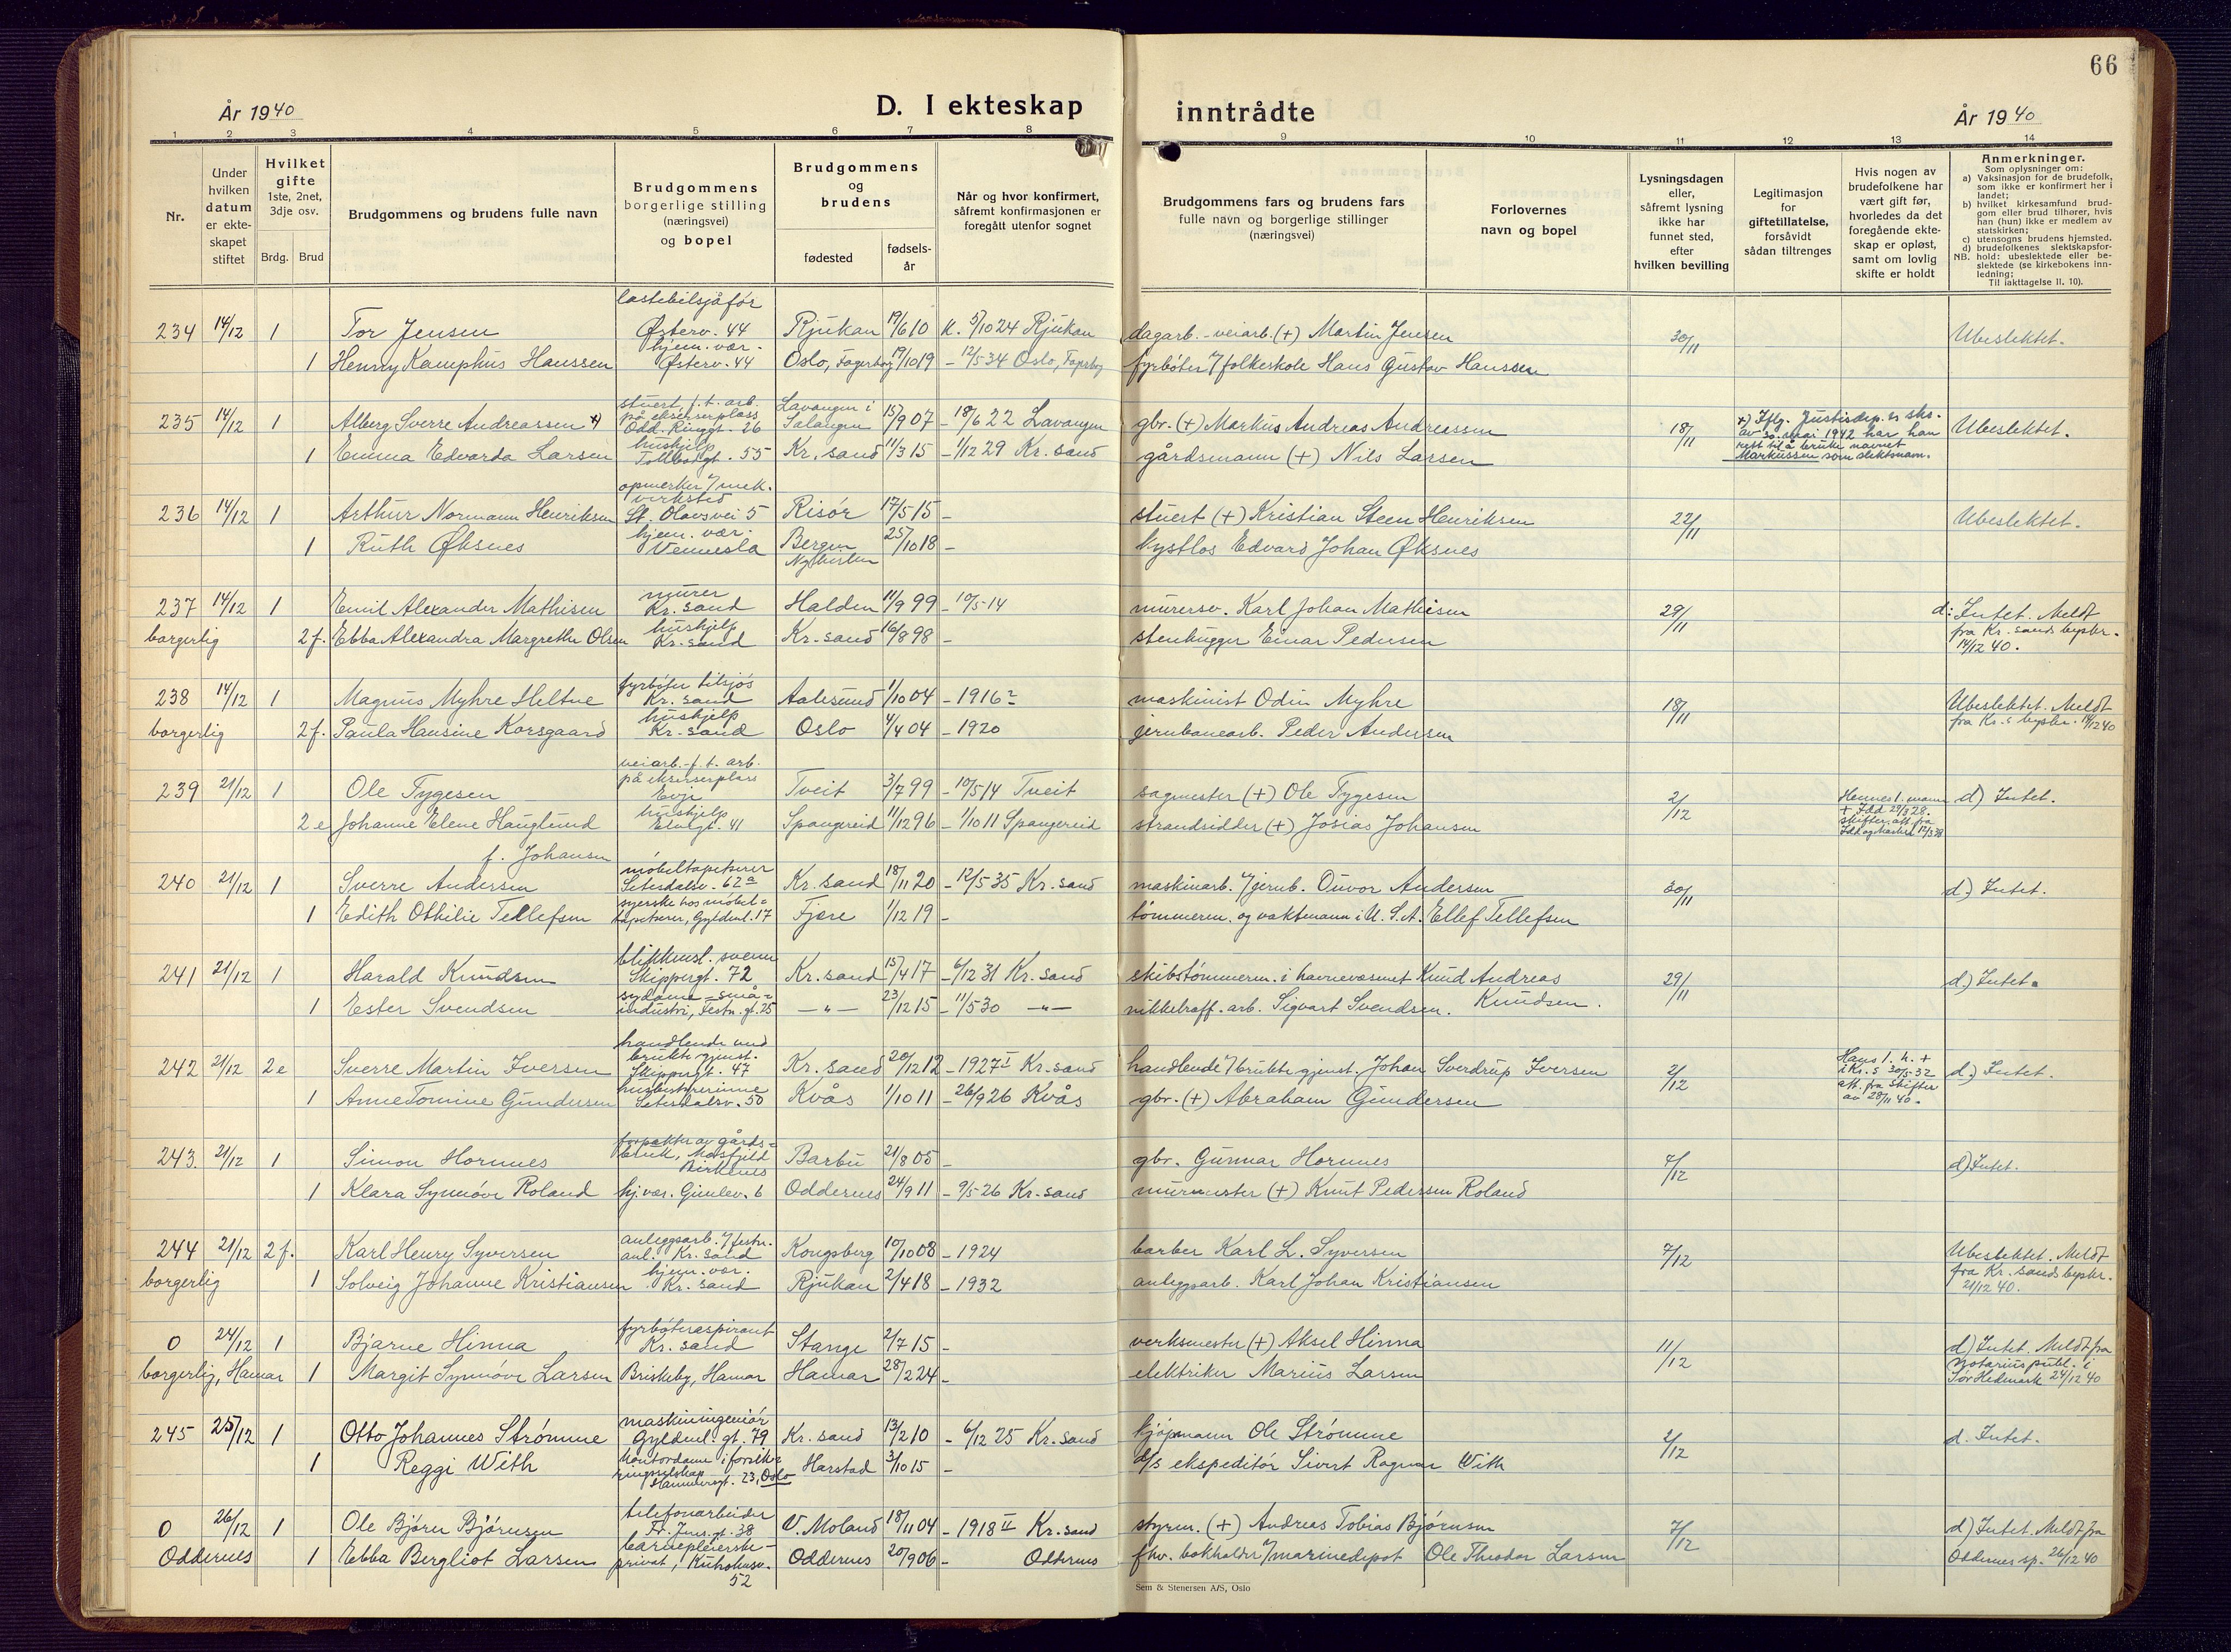 66
År 1940
D. I ekteskap
inntrådte
År 1940
1 2 3 4 5 6 7 8 9 10 11 12 13 14
Nr.
Under hvilken datum er ekte-skapet stiftet
Hvilket gifte 1ste, 2net, 3dje osv.
Brdg. Brud
Brudgommens og brudens fulle navn
Brudgommens borgerlige stilling (næringsvei) og bopel
Brudgommens og brudens
fødested
fødsels-år
Når og hvor konfirmert, såfremt konfirmasjonen er foregått utenfor sognet
Brudgommens fars og brudens fars fulle navn og borgerlige stillinger (næringsvei)
Forlovernes navn og bopel
Lysningsdagen eller, såfremt lysning ikke har funnet sted, efter hvilken bevilling
Legitimasjon for giftetillatelse, forsåvidt sådan tiltrenges
Hvis nogen av brudefolkene har vært gift før, hvorledes da det foregående ekte-skap er opløst, samt om lovlig skifte er holdt
Anmerkninger.
Som oplysninger om:
a) Vaksinasjon for de brudefolk, som ikke er konfirmert her i landet;
b) hvilket kirkesamfund brud-gom eller brud tilhører, hvis han (hun) ikke er medlem av statskirken;
c) utensogns brudens hjemsted.
d) brudefolkenes slektskapsfor-
NB. hold: ubeslektede eller be-slektede (se kirkebokens inn-ledning;
Til iakttagelse II. 10).
lastebilsjåfør
234 14/12 1 Tor Jensen Østerv. 44 Rjukan 19/6 10 K. 5/10 24 Rjukan dagarb.-veiarb. (+) Martin Jensen 30/11 Ubeslektet.
hjem. vær.
1 Henny Kamphus Hanssen Østerv. 44 Oslo, Fagerborg 19/10 19 - 12/5 34 Oslo, Fagerbg fyrbøter v/ folkeskole Hans Gustav Hanssen
stuert, f.t. arb. på ekserserplass
235 14/12 1 Alberg Sverre Andreassen +) Odd. Ringgt. 26 Lavangen i Salangen 15/9 07 - 18/6 22 Lavangen gbr. (+) Markus Andreas Andreassen 18/11 +) Iflg. Justisdep.s skr. av 30. mai 1942 har han rett til å bruke navnet Markussen som slektsnavn. Ubeslektet.
hushjelp
1 Emma Edvarda Larsen Tollbodgt. 55 Kr. sand 11/3 15 - 1/12 29 Kr. sand gårdsmann (+) Nils Larsen
opmerker v/ mek. verksted
236 14/12 1 Arthur Normann Henriksen St. Olavsvei 5 Risør 17/5 15 - stuert (+) Kristian Steen Henriksen 22/11 Ubeslektet.
hjem. vær
1 Ruth Øksnes Vennesla Bergen Nykirken 25/10 18 - kystlos Edvard Johan Øksnes
murer
237 14/12 1 Emil Alexander Mathisen Kr. sand Halden 11/9 99 - 10/5 14 murersv. Karl Johan Mathisen 29/11 d: Intet. Meldt
hushjelp
borgerlig 2 f. Ebba Alexandra Margrethe Olsen Kr. sand Kr. sand 16/8 98 - stenhugger Einar Pedersen fra Kr. sands byskr. 14/12 40.
fyrbøter tilsjøs
238 14/12 1 Magnus Myhre Heltne Kr. sand Aalesund 1/10 04 - 1916? maskinist Odin Myhre 18/11 Ubeslektet. Meldt
hushjelp
borgerlig 2 f. Paula Hansine Korsgaard Kr. sand Oslo 4/4 04 - 1920 jernbanearb. Peder Andersen fra Kr. s byskr. 14/12 40
veiarb. f.t. arb. på ekserserplass
239 21/12 1 Ole Tygesen Evje Tveit 3/7 99 - 10/5 14 Tveit sagmester (+) Ole Tygesen 2/12 Hennes 1. mann + Idd 29/3 28. d) Intet.
hushjelp
2 e Johanne Elene Hauglund Elvegt. 41 Spangereid 11/12 96 - 1/10 11 Spangereid strandsidder (+) Josias Johansen
f. Johansen
møbeltapetserer
240 21/12 1 Sverre Andersen Setesdalsv. 62a Kr. sand 18/11 20 - 12/5 35 Kr. sand maskinarb. v/ jernb. Ouvor Andersen 30/11 d.) Intet.
syerske hos møbel=
1 Edith Othilie Tellefsen tapetserer, Gyldenl. 17 Fjære 1/12 19 - tømmerm. og vaktmann i U.S.A. Ellef Tellefsen
blikkensl. svenn
241 21/12 1 Harald Knudsen Skippergt. 72 Kr. sand 15/4 17 - 6/12 31 Kr. sand skibstømmerm. i havnevæsenet Knud Andreas 29/11 d.) Intet.
sydame - små=
1 Ester Svendsen industri, Festn. gt. 25 - " - 23/12 15 - 11/5 30 - " - nikkelraff. arb. Sigvart Svendsen. Knudsen.
handlende med brukte gjenst.
242 21/12 2 e Sverre Martin Iversen Skippergt. 47 Kr. sand 20/12 12 - 1927 I Kr. sand handlende v/ brukte gjenst. Johan Sverdrup Iversen 2/12 Hans 1. h. + i Kr. s 30/5 32 att. fra skifter av 28/11 40. d.) Intet.
husbestyrerinne
1 Anne Tomine Gundersen Setesdalsv. 50 Kvås 1/10 11 - 26/9 26 Kvås gbr. (+) Abraham Gundersen
forpakter av gårds=
243. 21/12 1 Simon Hornnes bruk, Mosfjeld Birkenes Barbu 21/8 05 - gbr. Gunnar Hornnes 7/12 d) Intet.
1 Klara Synnøve Roland hj.vær. Gimlev. 6 Oddernes 24/9 11 - 9/5 26 Kr. sand murmester (+) Knut Pedersen Roland
anleggsarb. v/ festn.
244 21/12 2 f. Karl Henry Syversen anl. Kr. sand Kongsberg 10/10 08 - 1924 barber Karl L. Syversen 7/12 Ubeslektet. Meldt
hjem. vær.
borgerlig 1 Solveig Johanne Kristiansen Kr. sand Rjukan 2/4 18 - 1932 anleggsarb. Karl Johan Kristiansen fra Kr. sands byskr. 21/12 40.
fyrbøteraspirant
0 24/12 1 Bjarne Hinna Kr. sand Stange 2/7 15 - verksmester (+) Aksel Hinna 11/12 d) Intet. Meldt fra
borgerlig, Hamar 1 Margit Synnøve Larsen Briskeby, Hamar Hamar 28/2 24 - elektriker Marius Larsen notarius publ. i Sør Hedmark 24/12 40
maskiningeniør
245 25/12 1 Otto Johannes Strømme Gyldenl. gt. 79 Kr. sand 13/2 10 - 6/12 25 Kr. sand kjøpmann Ole Strømme 2/12 d. Intet.
1 Reggi With kontordame i forsikringsselskap 23, Oslo Harstad 3/10 15 - d/s ekspeditør Sivert Ragnar With
telefonarbeider
0 26/12 1 Ole Bjørn Bjørnsen Fr. Jens. gt. 38 V. Moland 18/11 04 - 1918 II Kr. sand styrm. (+) Andreas Tobias Bjørnsen 7/12 d) Intet. Meldt fra
barnepleierske-
Oddernes 1 Ebba Bergliot Larsen privat, Kuholmsv. 52 Oddernes 20/9 06 - Oddernes fhv. bokholder v/ marinedepot Ole Theodor Larsen Oddernes sp. 26/12 40
Sem & Stenersen A/S, Oslo